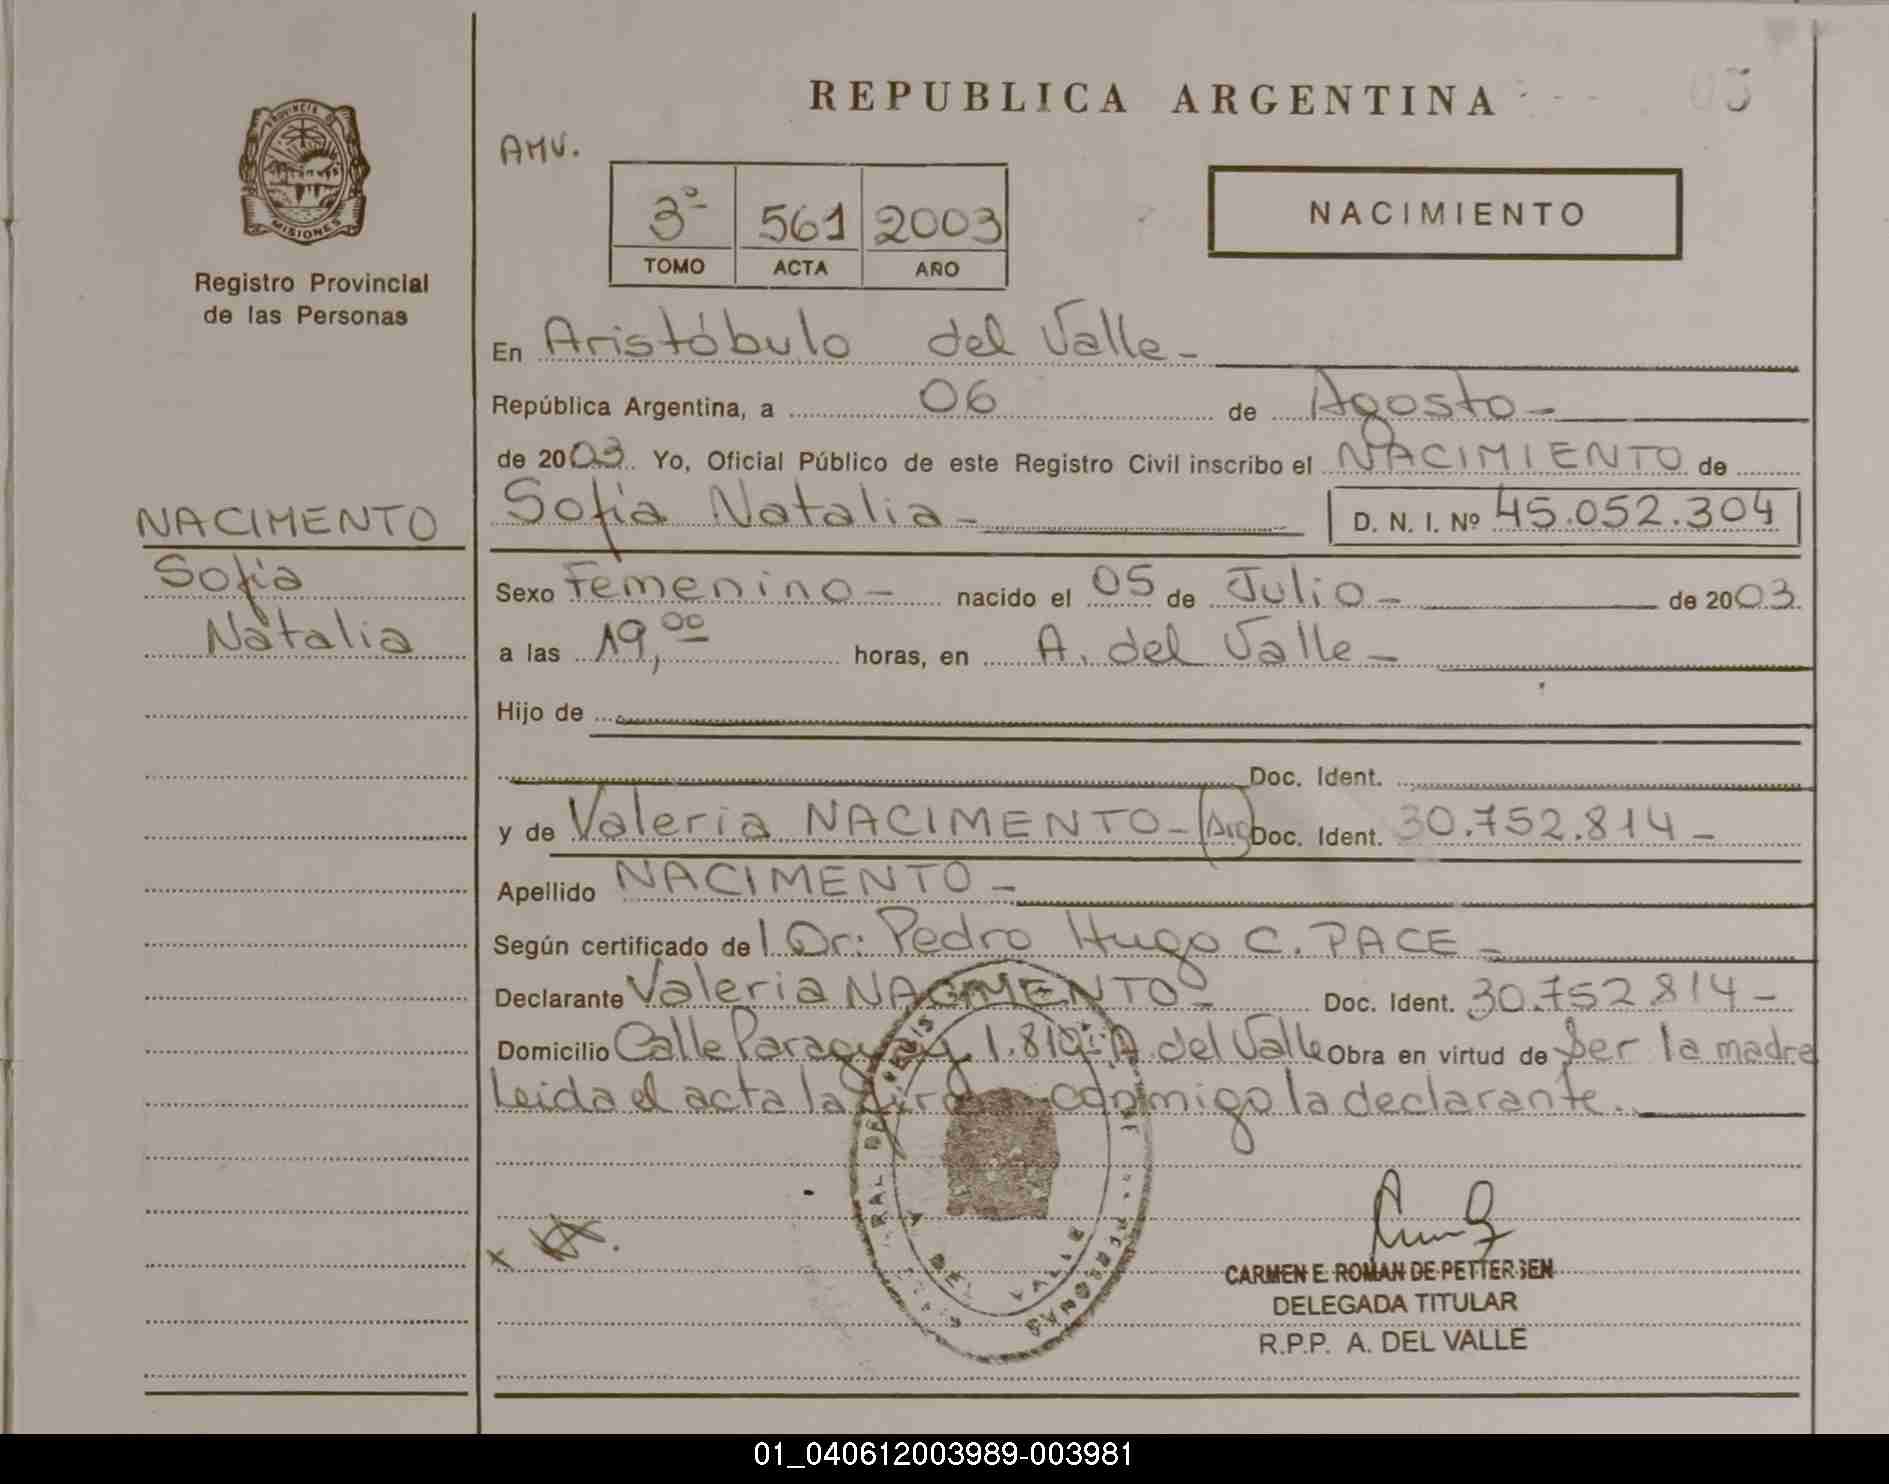 REPUBLICA ARGENTINA
03
PROVINCIA DE
MISIONES
Registro Provincial
de las Personas
AMV.
3º 561 2003
TOMO ACTA AÑO
NACIMIENTO
En Aristóbulo del Valle-
República Argentina, a 06 de Agosto-
de 2003. Yo, Oficial Público de este Registro Civil inscribo el NACIMIENTO de
Sofia Natalia- D. N. I. Nº 45.052.304
NACIMENTO
Sofia
Natalia
Sexo Femenino- nacido el 05 de Julio- de 2003.
a las 19,00 horas, en A. del Valle-
Hijo de
Doc. Ident.
y de Valeria NACIMENTO- (Arg) Doc. Ident. 30.752.814-
Apellido NACIMENTO-
Según certificado de l Dr: Pedro Hugo C. PACE-
Declarante Valeria NACIMENTO- Doc. Ident. 30.752.814-
Domicilio Calle Paraguay 1.810- A. del Valle Obra en virtud de Ser la madre
Leida el acta la firma conmigo la declarante.
DEL VALLE
PERSONAS
CARMEN E. ROMAN DE PETTERSEN
DELEGADA TITULAR
R.P.P. A. DEL VALLE
01_040612003989-003981